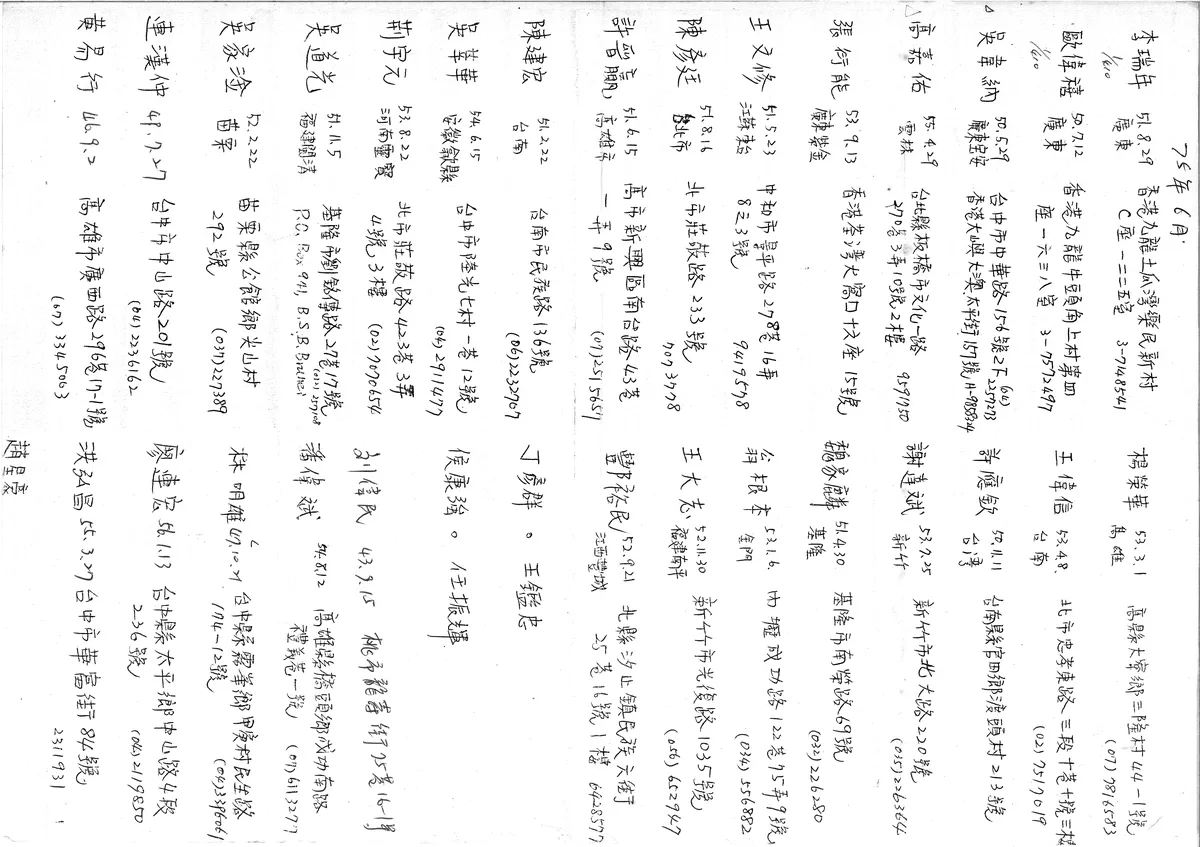 75年6月
李瑞年 51.8.29 香港九龍土瓜灣樂民新村
1/610 廣東 C座一二五室 3-7148541
歐偉禧 50.7.12 香港九龍牛頭角上村第四
1/610 廣東 座一六三八室 3-7572497
吳韋納 50.5.29 台中市中華路156號2F (04)2257273
廣東宝安 香港大嶼大澳太平街157號 H-9858324
高嘉佑 55.4.29 台北縣板橋市文化一路
雲林 270巷3弄10號2樓 9591750
張行能 53.9.13 香港荃灣大窩口十座15號
廣東紫金
王文修 51.5.23 中和市景平路278巷16弄
江蘇東台 8之3號 9419578
陳彥廷 51.8.16 北市莊敬路233號
台北市 7073778
許晉嘉 51.6.15 高市新興區南台路43巷
高雄市 一弄9號 (07)2515657
陳建宏 51.2.22 台南市民族路136號
台南 (06)2232707
吳華華 54.6.15 台中市陸光七村一巷12號
安徽歙縣 (04)2911477
荊宇元 53.8.22 北市莊敬路423巷3弄
河南靈寶 4號3樓 (02)7070654
吳道光 51.11.5 基隆市劉銘傳路27巷17號
福建閩清 P.O. Box 941, B.S.B. Brunei
吳家淦 52.2.22 苗栗縣公館鄉尖山村
苗栗 292號 (037)227389
連漢仲 49.7.27 台中市中山路201號
(04)2236162
黃易行 46.9.2 高雄市廣西路296巷17-1號
(07)3345003
楊榮華 53.3.1 高縣大寮鄉三隆村44-1號
高雄 (07)7816583
王偉信 53.4.8. 北市忠孝東路三段十巷十號三樓
台南 (02)7517019
許應欽 50.11.11 台南縣官田鄉渡頭村213號
台灣
謝達斌 53.7.25 新竹市北大路220號
新竹 (035)226364
魏家麟 51.4.30 基隆市南榮路69號
基隆 (032)226280
公羽根本 53.1.6. 內壢成功路122巷75弄9號
金門 (034)556882
王大志 52.11.30 新竹市光復路1035號
福建南平 (056)652947
鄷裕民 52.9.21 北縣汐止鎮民族六街
江西豐城 25巷16號1樓 6428577
丁彥群。王鑑忠
侯康強。任振輝
劉偉民 43.9.15 桃市龍壽街75巷16-1號
潘偉斌 54.8.12 高雄縣橋頭鄉成功南路
禮義巷一號 (07)6113277
林明雄 47.10.21 台中縣霧峯鄉甲寅村民生路
174-12號 (04)3396061
廖連宏 56.1.13 台中縣太平鄉中山路4段
236號 (04)2119850
洪弘昌 55.3.27 台中市華富街84號
2311931
趙星豪